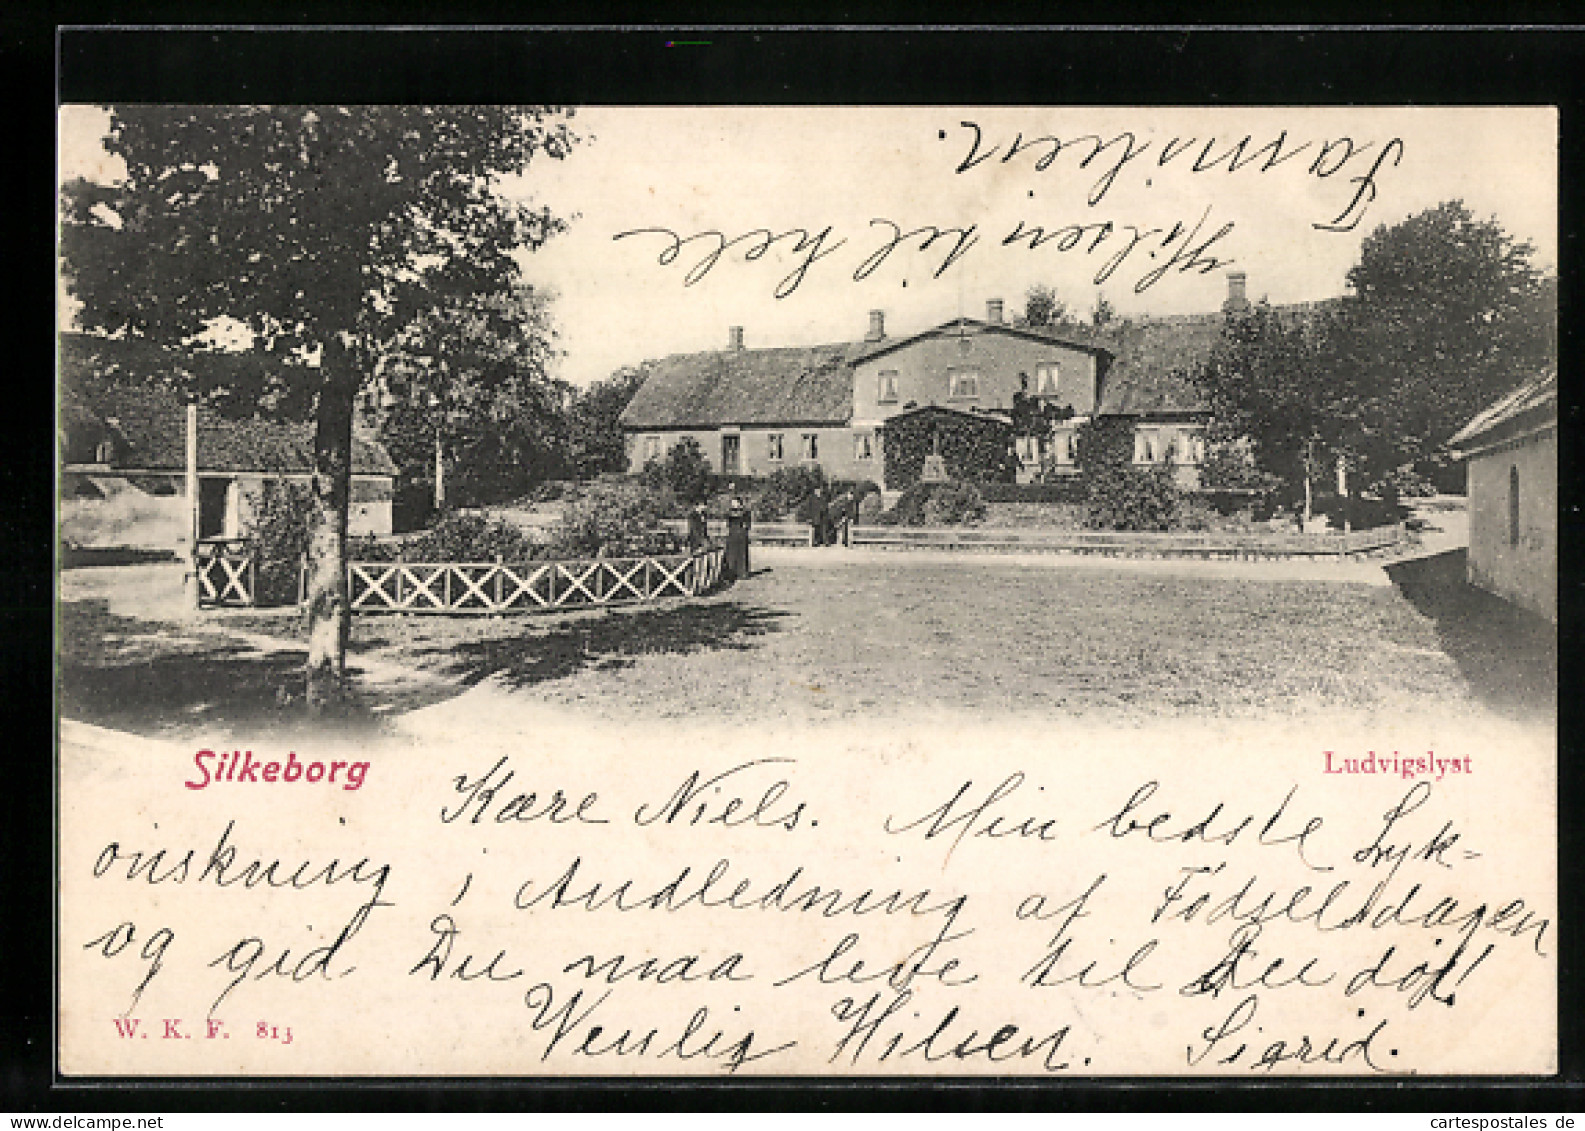 Hilsen til hele
Familien.
Silkeborg
Ludvigslyst
Kære Niels. Min bedste Lyk-
ønskning i Andledning af Födselsdagen
og gid Du maa leve til Du dör!
Venlig Hilsen. Sigrid.
W. K. F. 813
cartespostales de